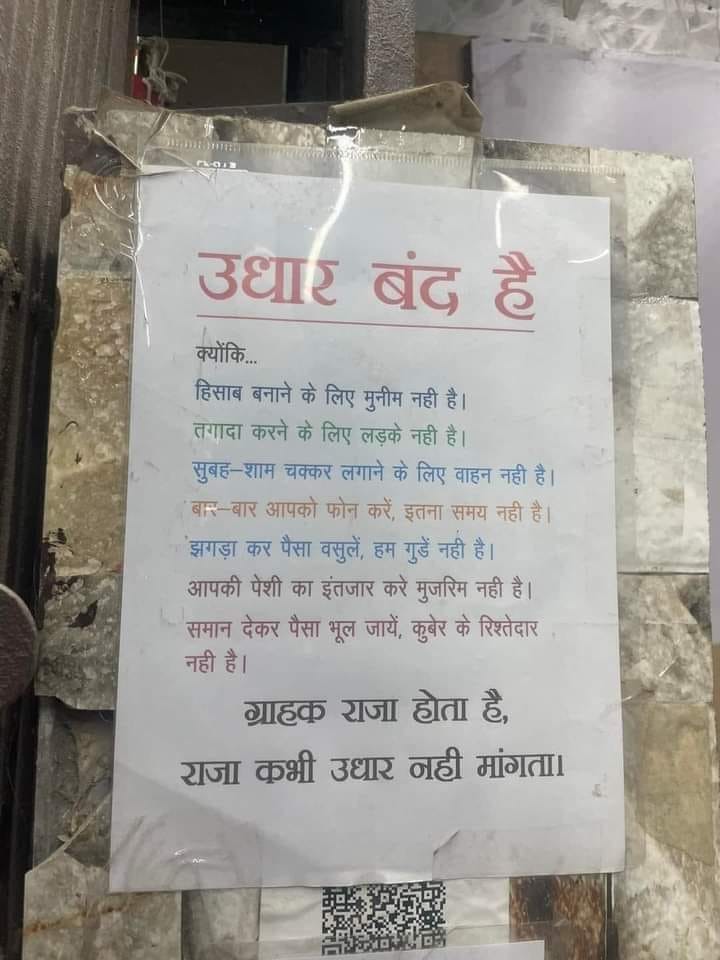 उधार बंद है
क्योंकि...
हिसाब बनाने के लिए मुनीम नही है।
तगादा करने के लिए लड़के नही है।
सुबह–शाम चक्कर लगाने के लिए वाहन नही है।
बार–बार आपको फोन करें, इतना समय नही है।
झगड़ा कर पैसा वसुलें, हम गुडें नही है।
आपकी पेशी का इंतजार करे मुजरिम नही है।
समान देकर पैसा भूल जायें, कुबेर के रिश्तेदार
नही है।
ग्राहक राजा होता है,
राजा कभी उधार नही मांगता।